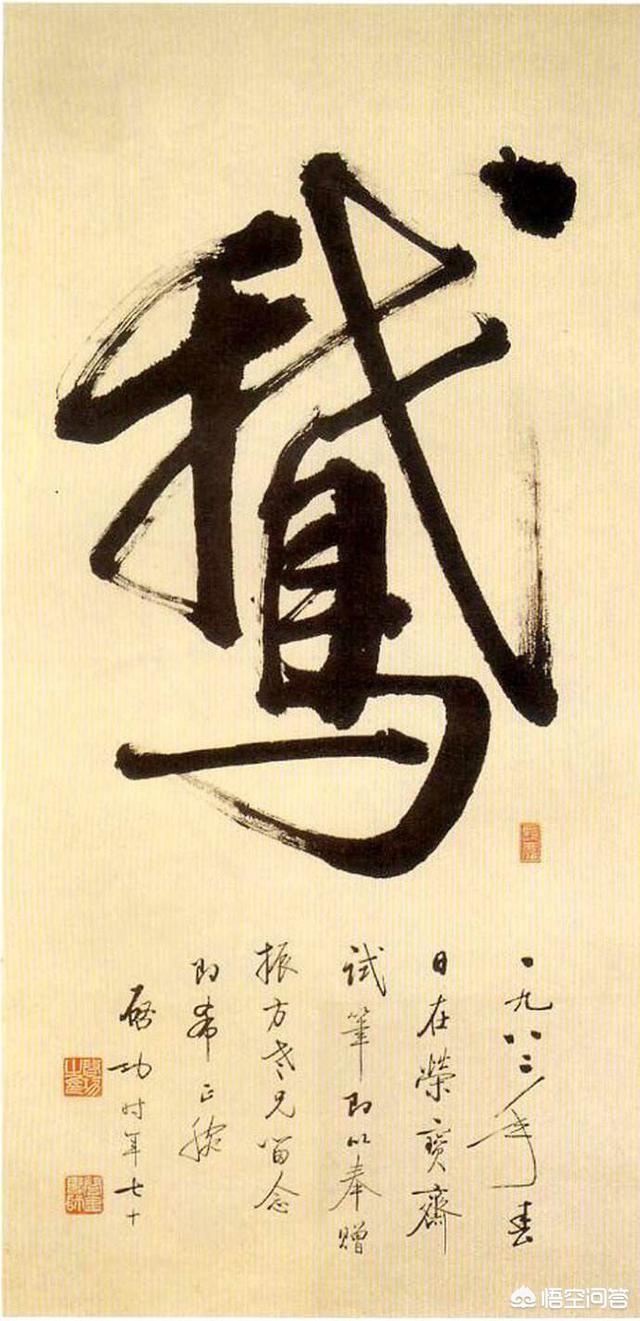 鵝
一九八二年春
日在榮寶齋
試筆即以奉贈
振方老兄留念
即希正腕
啟功时年七十
悟空问答